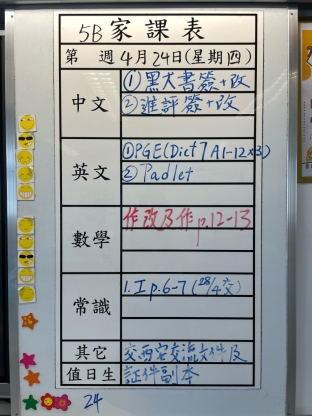 5B 家課表
第 週 4月24日(星期四)
中文
①黑大書簽+改
②進評簽+改
英文
①PGE(Dict 7 A1-12x3)
②Padlet
數學
作改及作p.12-13
常識
1.工p.6-7(28/4交)
其它
交西安交流文件及
值日生
証件副本
24